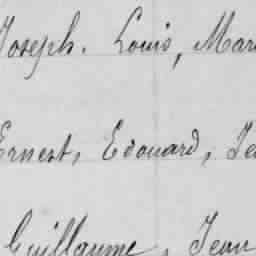 Joseph. Louis, Mar
Ernest, Edouard, Je
Guillaume, Jean